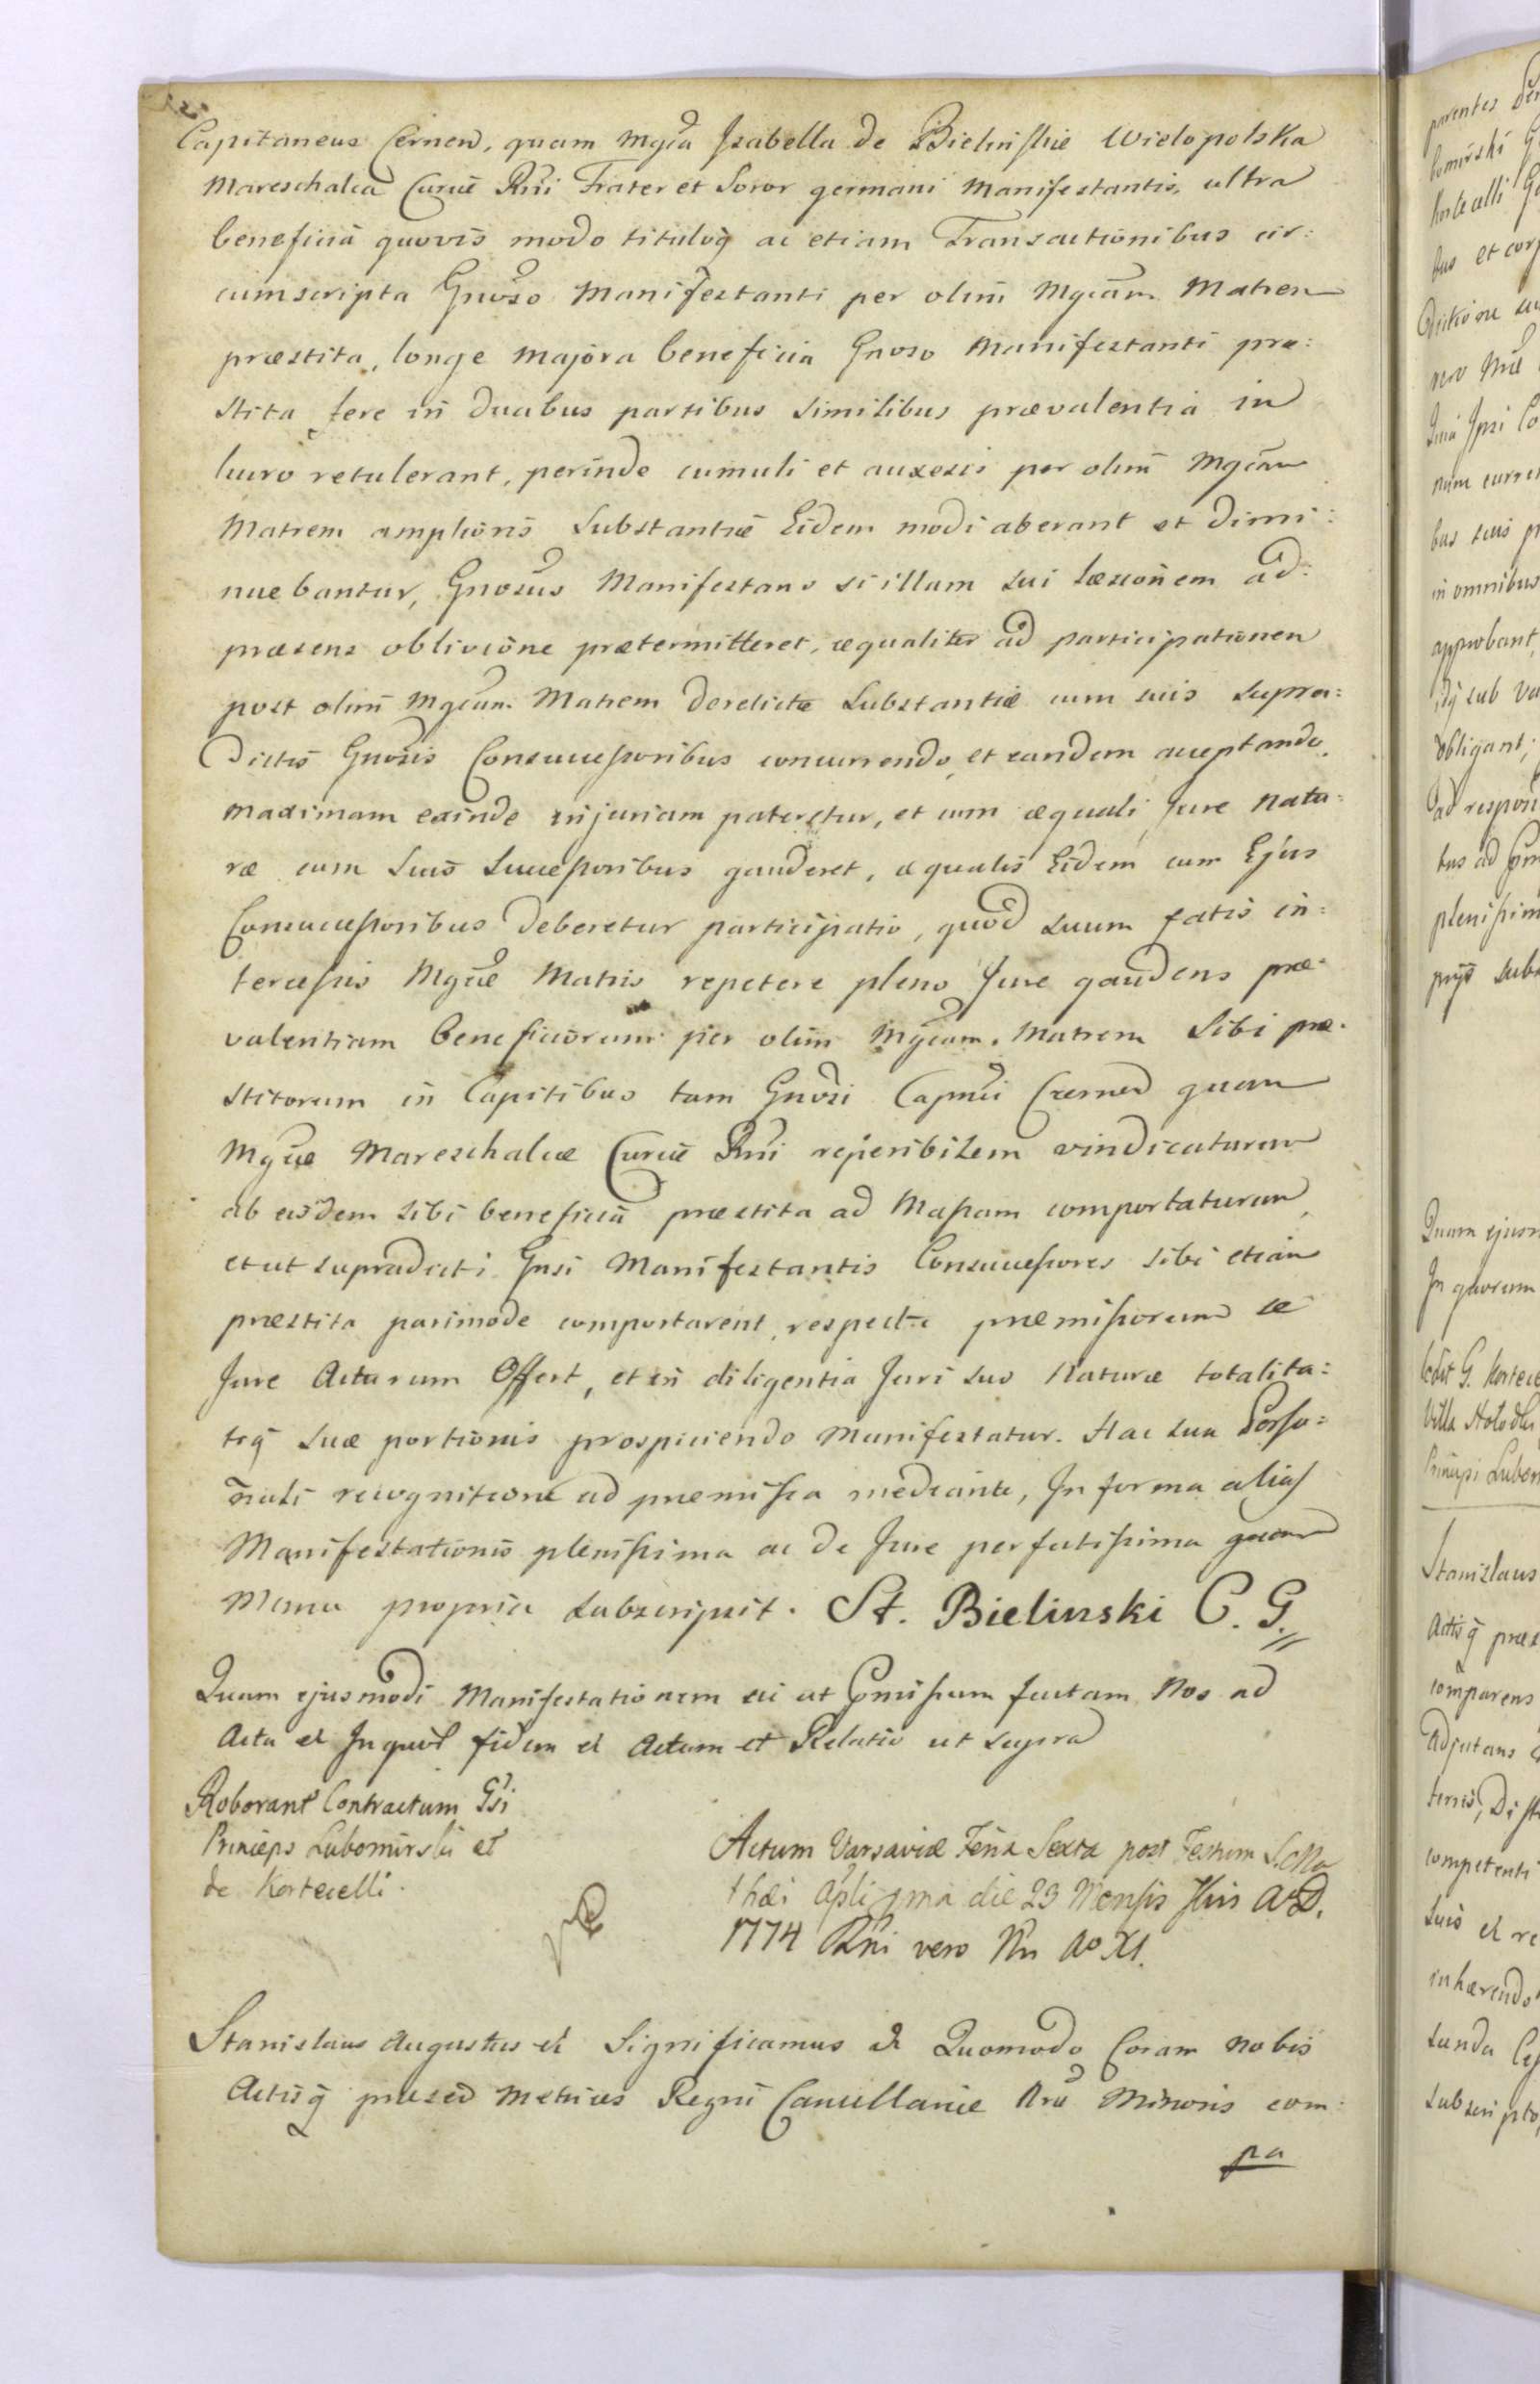 Capitaneus Cernen, quam Mgca Isabella de Bielinskie Wielopolska
Mareschalca Curiæ Rni Frater et Soror germani Manifestantis, ultra
beneficia quovis modo tituloq ac etiam Transactionibus cir:
cumscripta Gnoso Manifestanti per olim Mgcam Matrem
præstita, longe majora beneficia Gnoso Manifestanti præ:
stita fere in duabus partibus similibus prævalentia in
lucro retulerant, perinde cumuli et auxesis per olim Mgcam
Matrem amplioris Substantiæ Eidem modi aberant et dimi:
nuebantur, Gnosus Manifestans si illam sui læsionem ad:
præsens oblivione prætermitteret, æqualiter ad participationem
post olim Mgcam Matrem derelictæ Substantiæ cum suis supra:
dictis Gnosis Consuccessoribus concurrendo, et eandem acceptando,
maximam exinde injuriam pateretur, et cum æquali Jure natu:
ræ cum suis Successoribus gauderet, æqualis Eidem cum Ejus
Consuccessoribus deberetur participatio, quod suum fatis in:
tercessis Mgcæ Matris repetere pleno Jure gaudens præ:
valentiam beneficiorum per olim Mgcam Matrem Sibi præ:
stitorum in Capitibus tam Gnosi Capnei Czerned quam
Mgcæ Mareschalcæ Curiæ Rni reperibilem vindicaturum
ab eisdem sibi beneficia præstita ad Massam comportaturum,
et ut supradicti Gnsi Manifestantis Consuccessores sibi etiam
præstita parimode comportarent, respectu præmissorum se
Jure Acturum Offert, et in diligentia Juri suo Naturæ totalita:
tiq suæ portionis prospiciendo Manifestatur. Hac sua Perso:
nali recognitione ad præmissa mediante, In forma alias
Manifestationis plenissima ac de Jure perfectissima quam
Manu propria subscripsit. St. Bielinski C. G.
Quam ejusmodi Manifestationem uti ut Pmissum factam Nos ad
Acta et In quor fidem et Actum et Relatio ut supra
Roborant Contractum Gsi
Princeps Lubomirski et
de Kortecelli.
Actum Varsaviæ Feria Sexta post Festum S. Ma
thæi Apli pma die 23 Mensis Jbris A. D.
1774 Rni vero Nri Ao XI.
Stanislaus Augustus et Significamus et Quomodo Coram nobis
Actisq præsed Metrices Regni Cancellariæ Nræ Minoris com:
pa
Quam ejusm
In quorum
Stanislaus
comparens
in omnibus
approbant,
obligant,